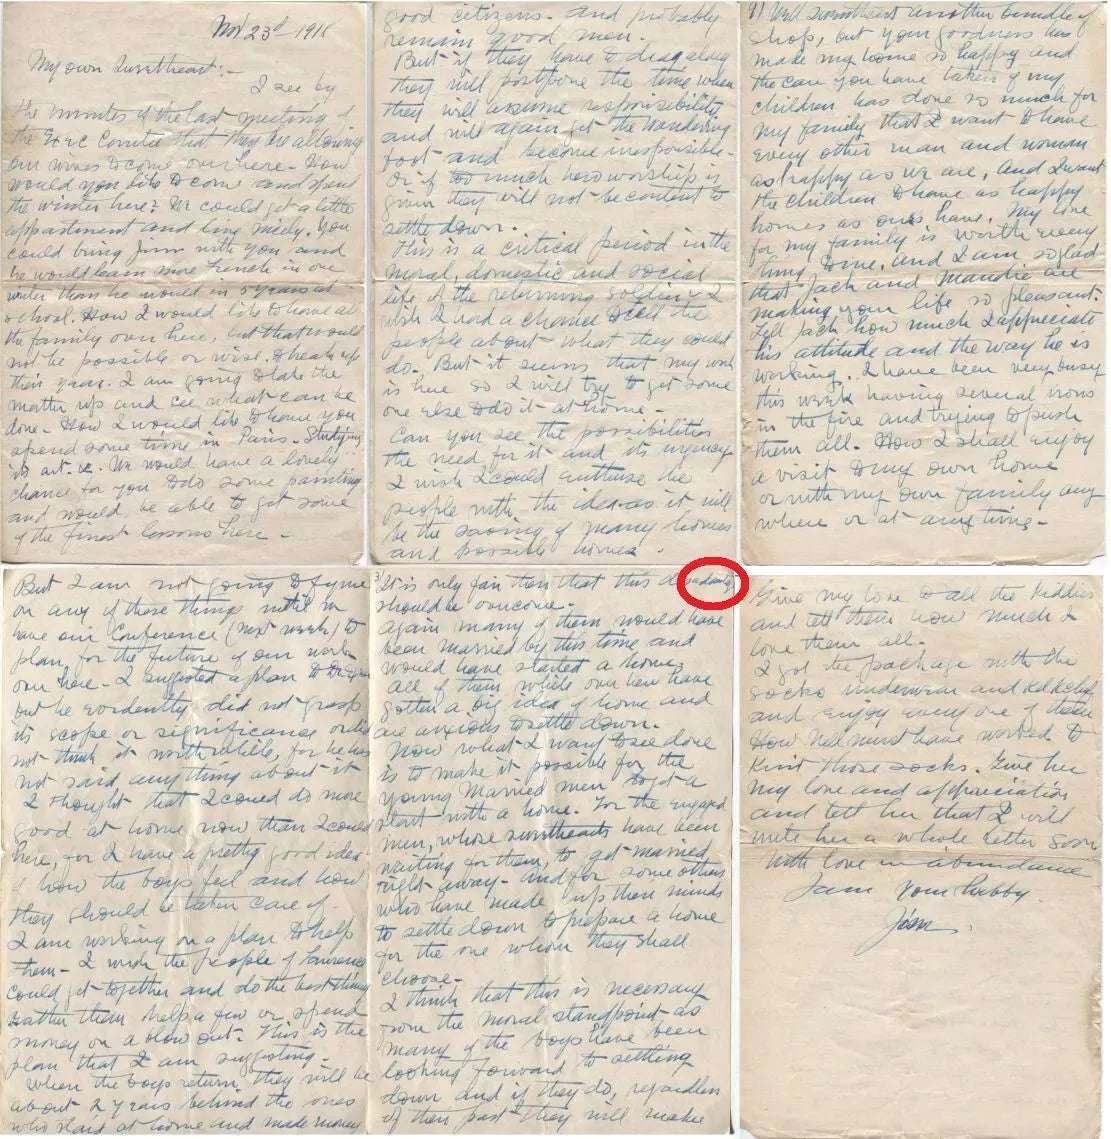 Nov 23d 1918
My own Sweetheart:-
I see by
the minutes of the last meeting
the Exec Comtte that they are allowing
our wives to come over here. How
would you like to come and spend
the winter here? We could get a little
appartment and live nicely. You
could bring Jim with you and
he would learn more french in one
winter than he would in 5 years at
school. How I would like to have all
the family over here, but that would
not be possible or wise, to break up
their year. I am going to take the
matter up and see what can be
done. How I would like to have you
spend some time in Paris. Studying
its art &c. We would have a lovely
chance for you to do some painting
and would be able to get some
of the finest lessons here -
But I am not going to figure
on any of these things until we
have our Conference (next week) to
plan for the future of our work
over here - I suggested a plan to
but he evidently did not grasp
its scope or significance or did
not think it worth while, for he has
not said anything about it
I thought that I could do more
good at home now than I could
here, for I have a pretty good idea
of how the boys feel and how
they should be taken care of -
I am working on a plan to help
them - I wish the people of Lawrence
could get together and do the best thing
rather than help a few or spend
money on a blow out. This is the
plan that I am suggesting -
When the boys return, they will be
about 2 years behind the ones
who staid at home and made money
3/ It is only fair then that this disadvantage
should be overcome.
Again many of them would have
been married by this time and
would have started a home,
all of them while over here have
gotten a big idea of home and
are anxious to settle down.
Now what I want to see done
is to make it possible for the
young married men to get a
start with a home. For the engaged
men, whose sweethearts have been
waiting for them, to get married
right away - and for some others
who have made up their minds
to settle down to prepare a home
for the one whom they shall
choose -
I think that this is necessary
from the moral standpoint as
many of the boys have been
looking forward to settling
down and if they do, regardless
of their past they will make
good citizens. and probably
remain good men.
But if they have to drag along
they will postpone the time when
they will assume responsibility
and will again get the wandering
foot and become irresponsible -
Or if too much hero worship is
given they will not be content to
settle down.
This is a critical period in the
moral, domestic and social
life of the returning soldier & I
wish I had a chance to tell the
people about what they could
do. But it seems that my work
is here so I will try to get some
one else to do it at home -
Can you see the possibilities
the need for it and its urgency
I wish I could enthuse the
people with the idea as it will
be the saving of many homes
and possible homes.
another bundle of
shop, but your goodness has
made my home so happy and
the care you have taken of my
children has done so much for
my family that I want to have
every other man and woman
as happy as we are, and I want
the children to have as happy
homes as ours have. My love
for my family is worth every
thing to me, and I am so glad
that Jack and Maudie are
making your life so pleasant.
Tell Jack how much I appreciate
his attitude and the way he is
working. I have been very busy
this week having several irons
in the fire and trying to push
them all. How I shall enjoy
a visit to my own home
or with my own family any
where or at any time -
Give my love to all the kiddies
and tell them how much I
love them all.
I got the package with the
socks underwear and
and enjoy every one of them
How Nell must have worked to
knit those socks. Give her
my love and appreciation
and tell her that I will
write her a whole letter soon
With love in abundance
I am Your hubby
Jim.